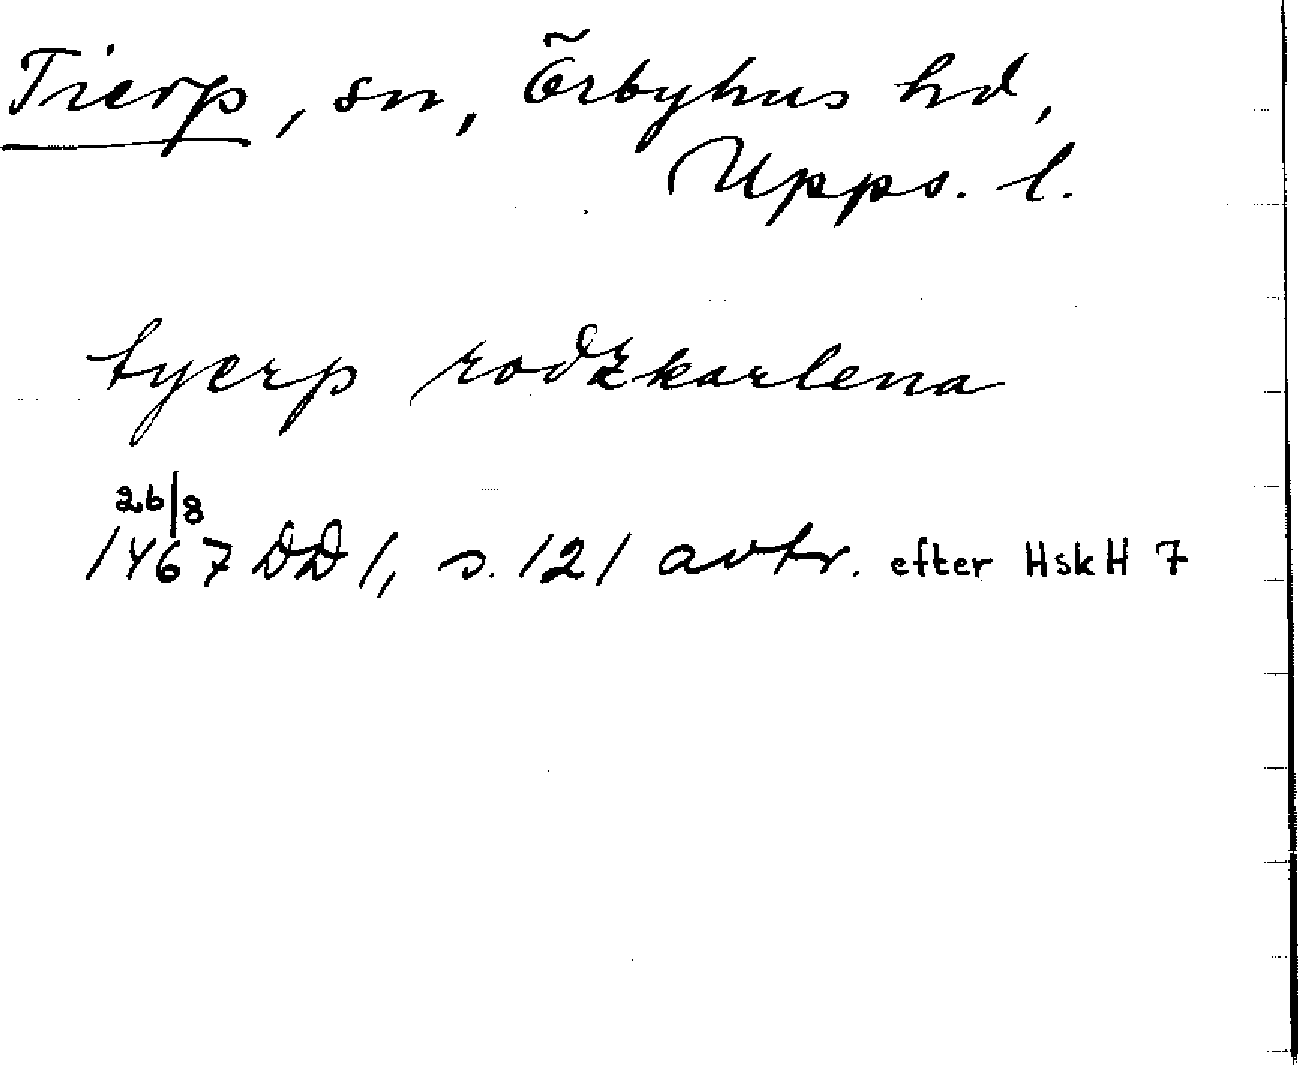 Tierp, sn, Örbyhus hd,
Upps. l.
tyerp rodzkarlena
26/8
1467 DD 1, s. 121 avtr. efter HskH 7